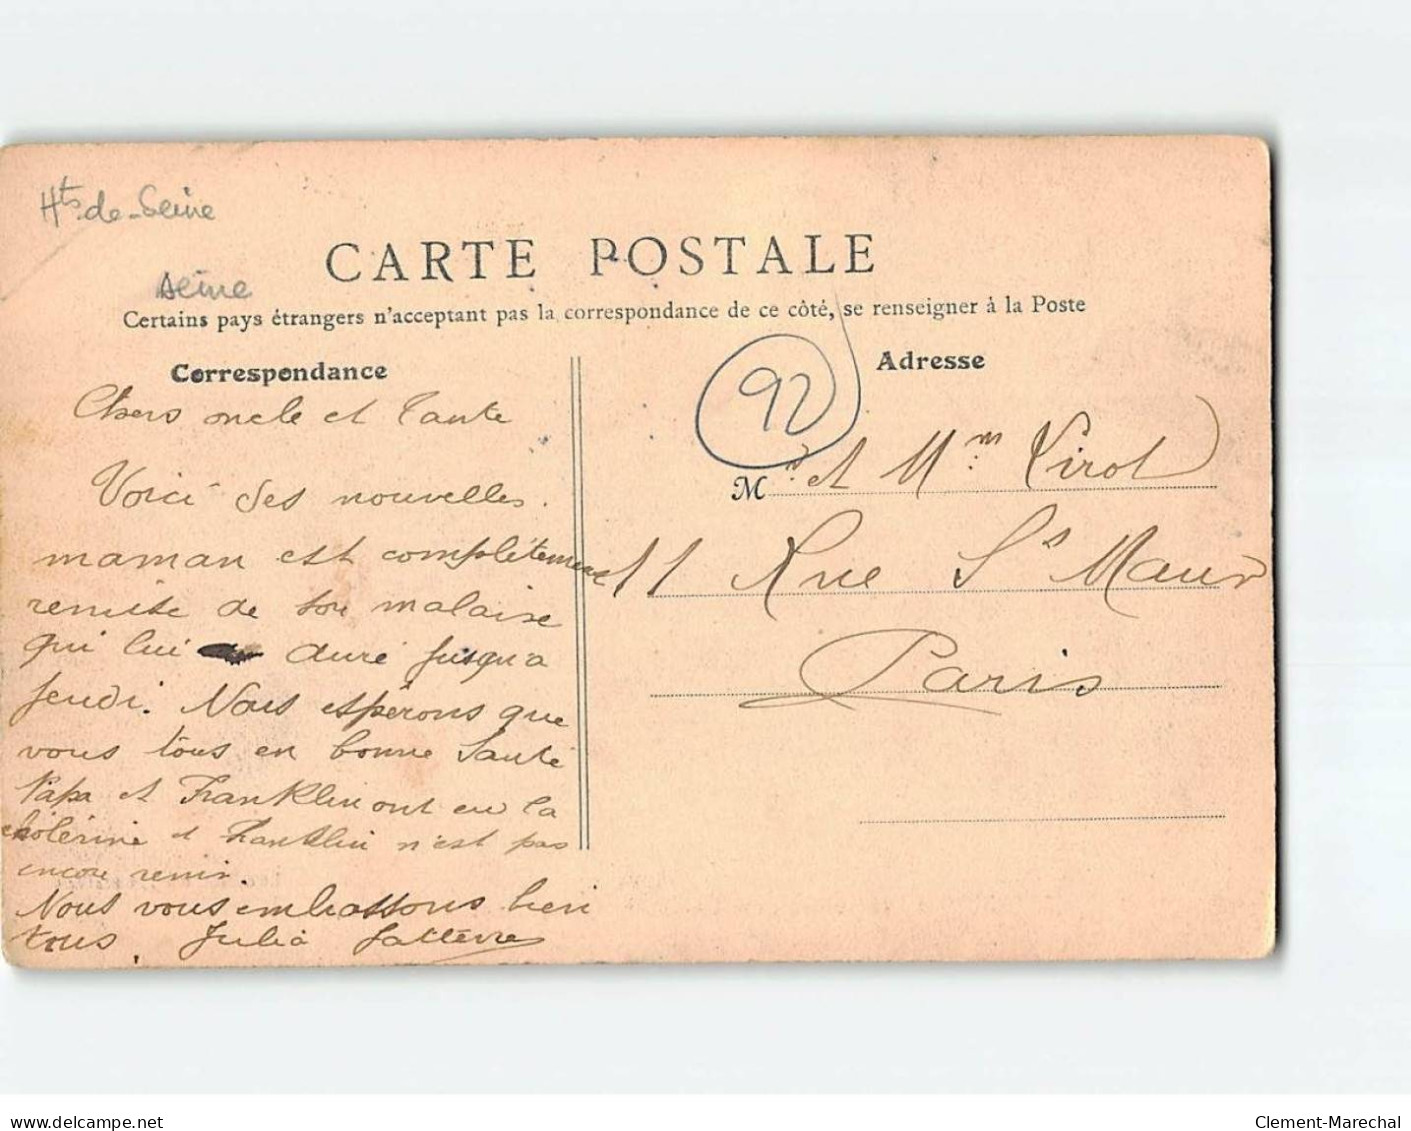 Hts-de-Seine
CARTE POSTALE
Seine
Certains pays étrangers n'acceptant pas la correspondance de ce côté, se renseigner à la Poste
Correspondance
Chers oncle et Tante
Voici des nouvelles.
maman est complètement
remise de son malaise
qui lui duré jusqu'a
jeudi. Nous espérons que
vous tous en bonne santé
Papa et Franklin ont eu la
cholérine et Franklin n'est pas
encore remis.
Nous vous embrassons bien
tous, Julia
Adresse
92
M et Mm Virol
11 Rue St Maur
Paris
www.delcampe.net
Clement-Marechal